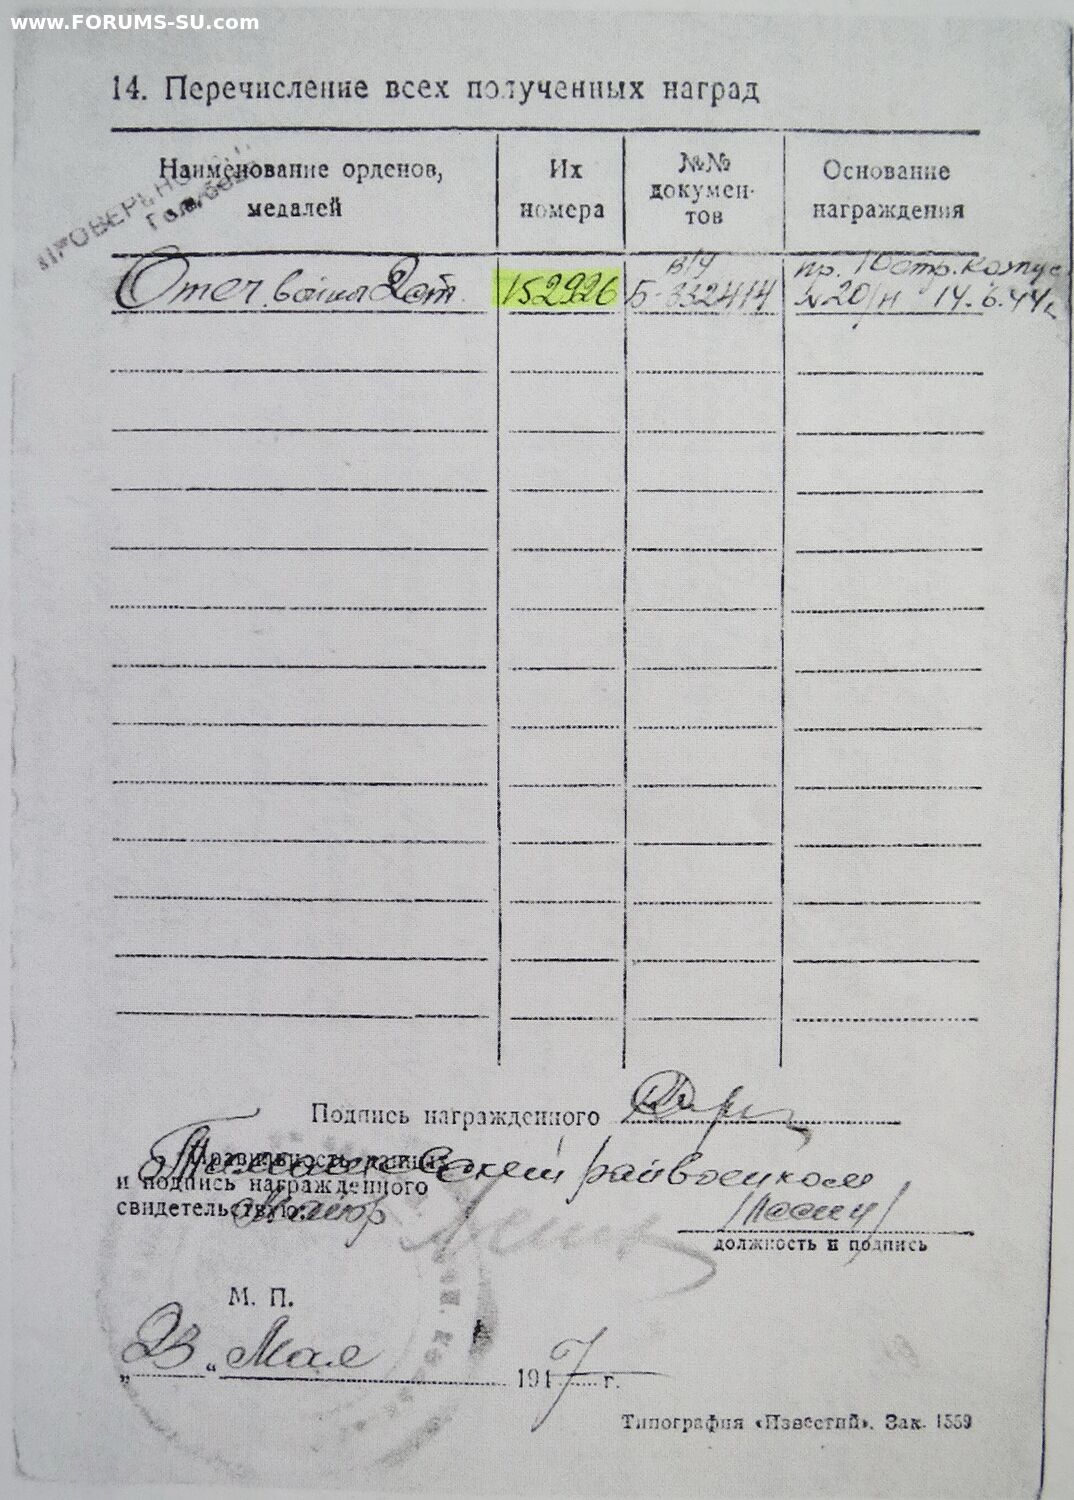 www.FORUMS-SU.com
14. Перечисление всех полученных наград
Наименование орденов, медалей
Их номера
№№ докумен-
тов
Основание награждения
Отеч. войны 2 ст.
152926
в/у
Б-332414
пр. 10 стр. корпус
№ 20/н 14.6.44г
Подпись награжденного
Правильность данных
и подпись награжденного
свидетельствую:
райвоенком
Майор
должность и подпись
М. П.
„23“ Мая 1947 г.
Типография «Известий». Зак. 1559